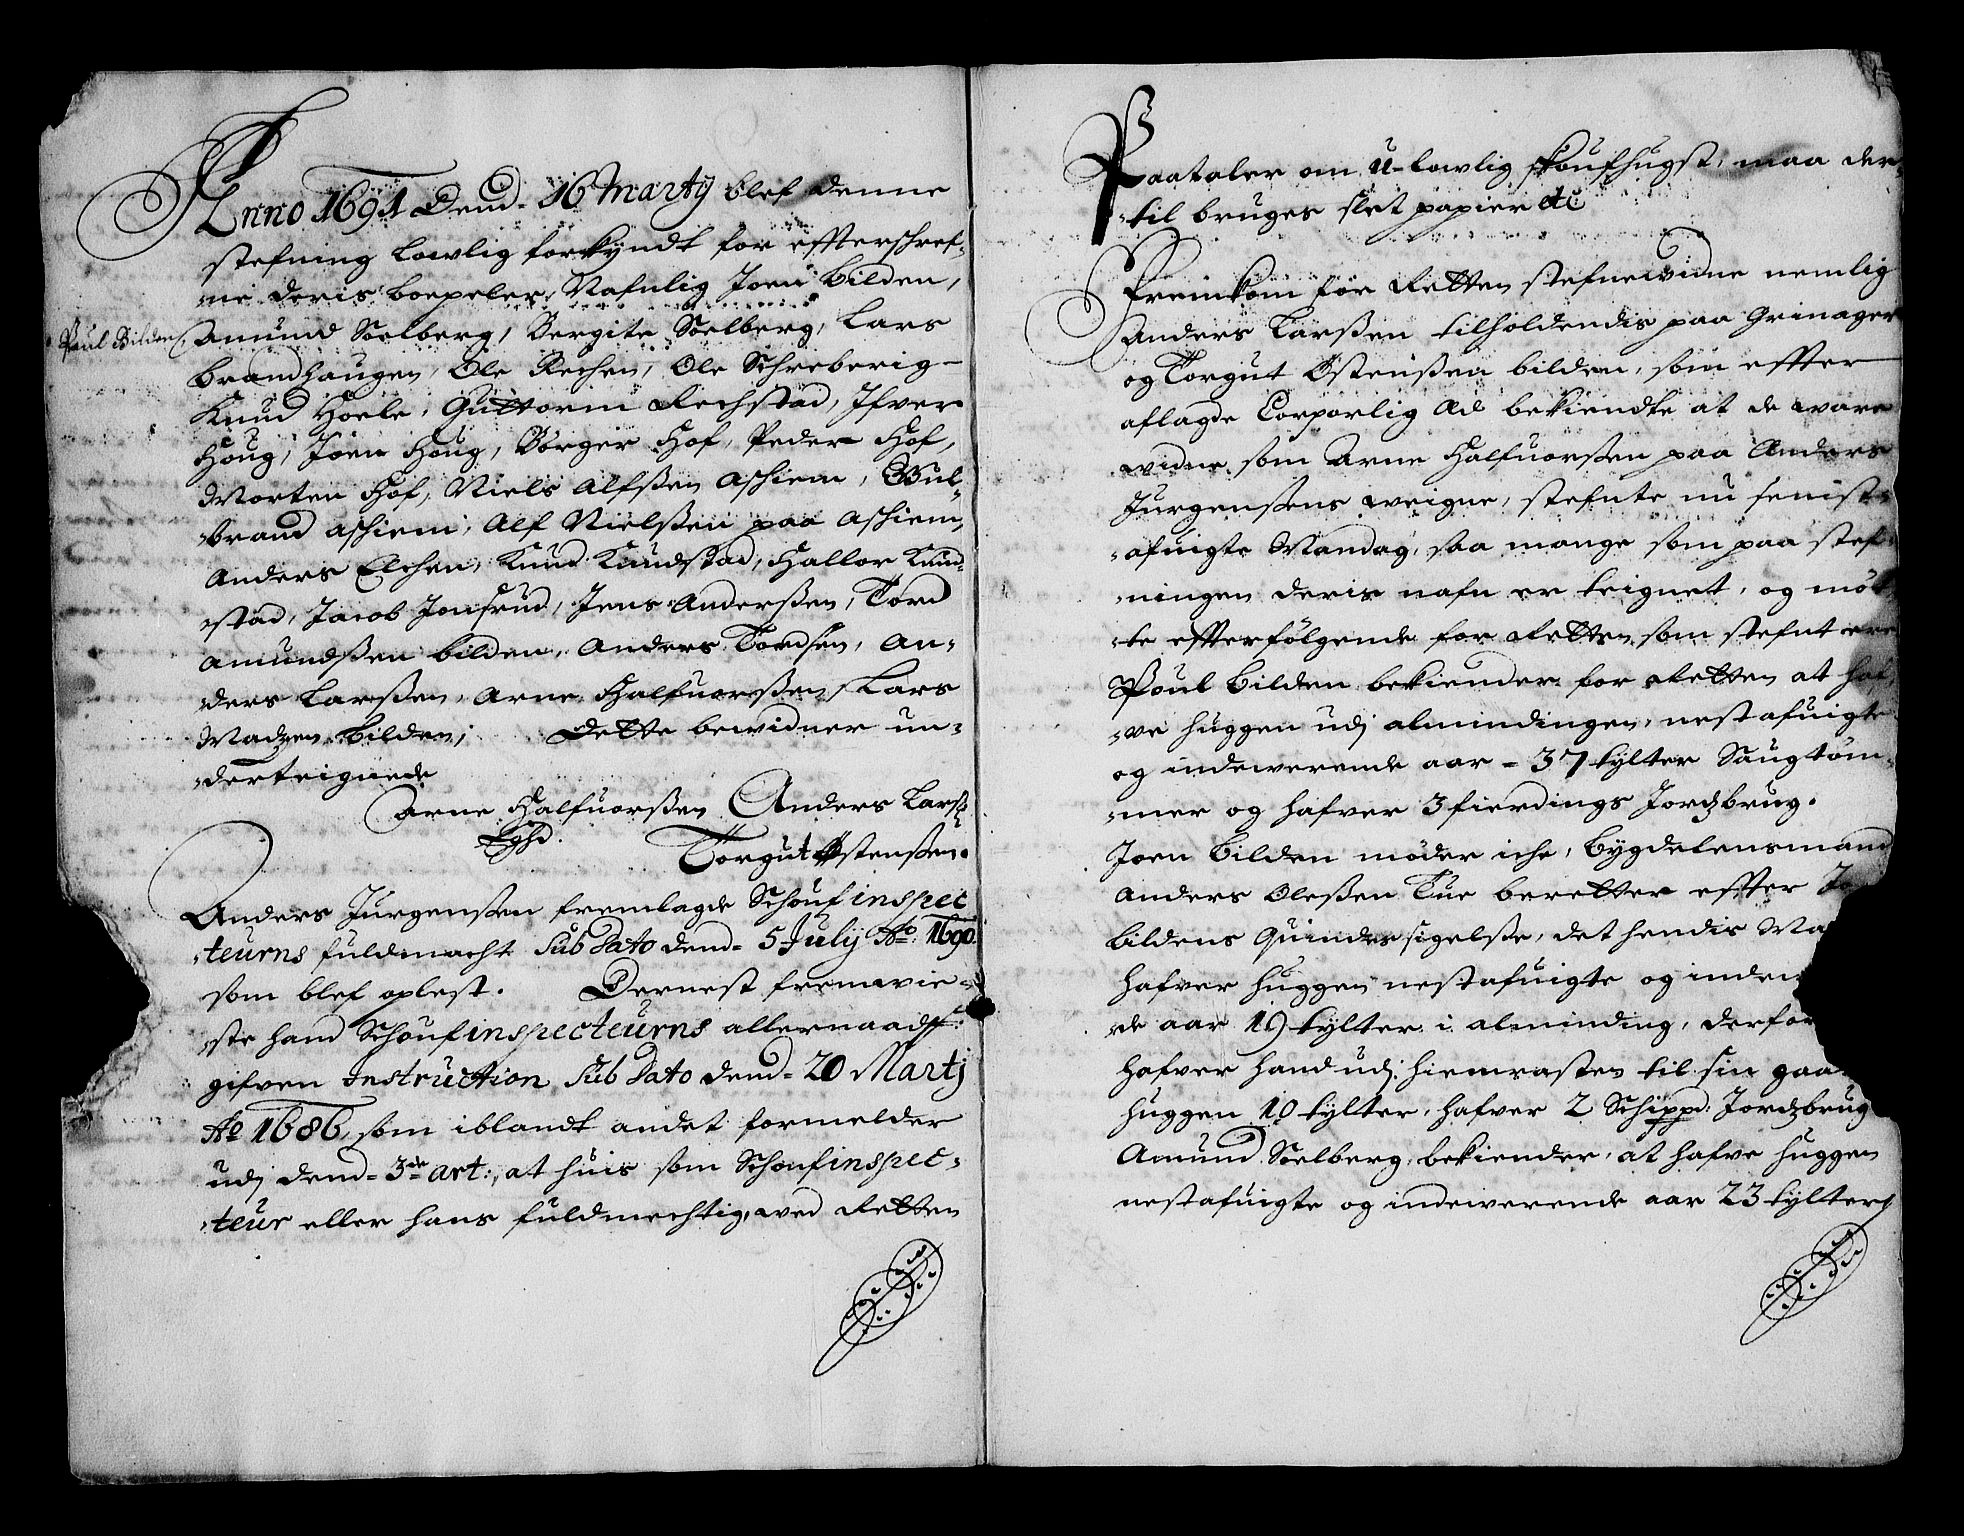 Anno 1691 Dend. 16 Martÿ blef denne
stefning lowlig forkyndt for effterschref,
,ne deris boepeler, Nafnlig Joen Bilden,
Poul Bilden,
Amund Soelberg, Bergite Soelberg, Lars
Brandhaugen, Ole Rechen, Ole Schreberig
Knud Hoele, Guttorm Rechstad, Ifver
Houg, Joen Houg, Børger Hof, Peder Hof,
Morten Hof, Niels Alfßen Aschiem, Gul,
,brand Aschiem, Alf Nielßen paa Aschiem,
Anders Elchen, Knud Knudstad, Hallor Knud,
,stad, Jacob Jonsrud, Jens Anderßen, Tord
Amundßen Bilden, Anders Tordsen, An,
,ders Larßen, Arne Halfuorßen, Lars
Madzen Bilden, Dette bewidner un,
,derteignede
Arne Halfuorßen Anders Larß:
Eghd. Torgut Østenßen.
Anders Jurgenßen fremlagde Schoufinspec
,teurns fuldmacht Sub Dato dend. 5 July Ao: 1690.
som blef oplest. Dernest fremwie,
,ste hand Schoufinspecteurns allernaadst
gifven Instruction Sub Dato dend. 20 Martj
Ao 1686, som iblandt andet formelder
udj dend. 3de art:, at huis som Schoufinspec,
,teur eller hans fuldmechtig, wed Retten
Paataler om u-lowlig skoufhugst, maa der,
,til bruges slet papier etc
Fremkom for Retten stefnewidne nemlig
Anders Larßen tilholdendis paa Grinager
og Torgut Østenßen Bilden, som effter
aflagde Corporlig Æd bekiendte at de ware
widne som Arne Halfuorßen paa Anders
Jurgenßens weigne, stefnte nu senist,
,afuigte Mandag, saa mange som paa stef,
,ningen deris nafn er teignet, og mød
,te effterfølgende for Retten som stefnt ere
Poul Bilden bekiender for Retten at haf,
,ve huggen udj almindingen, nestafuigte
og indewerende aar - 37 tylter Saugtøm,
,mer og hafver 3 fierdings Jordzbrug.
Joen Bilden møder iche, Bygdelensmand
Anders Oleßen Tue beretter effter
Bildens Quindes sigelße, det hendis
hafver huggen nestafuigte og
de aar 19 tylter i alminding,
hafver hand udj hiemrasten til sin
huggen 10 tylter, hafver 2 Schippd. Jordzbrug
Amund Soelberg, bekiender, at hafve huggen
nestafuigte og indewerende aar 23 tylter